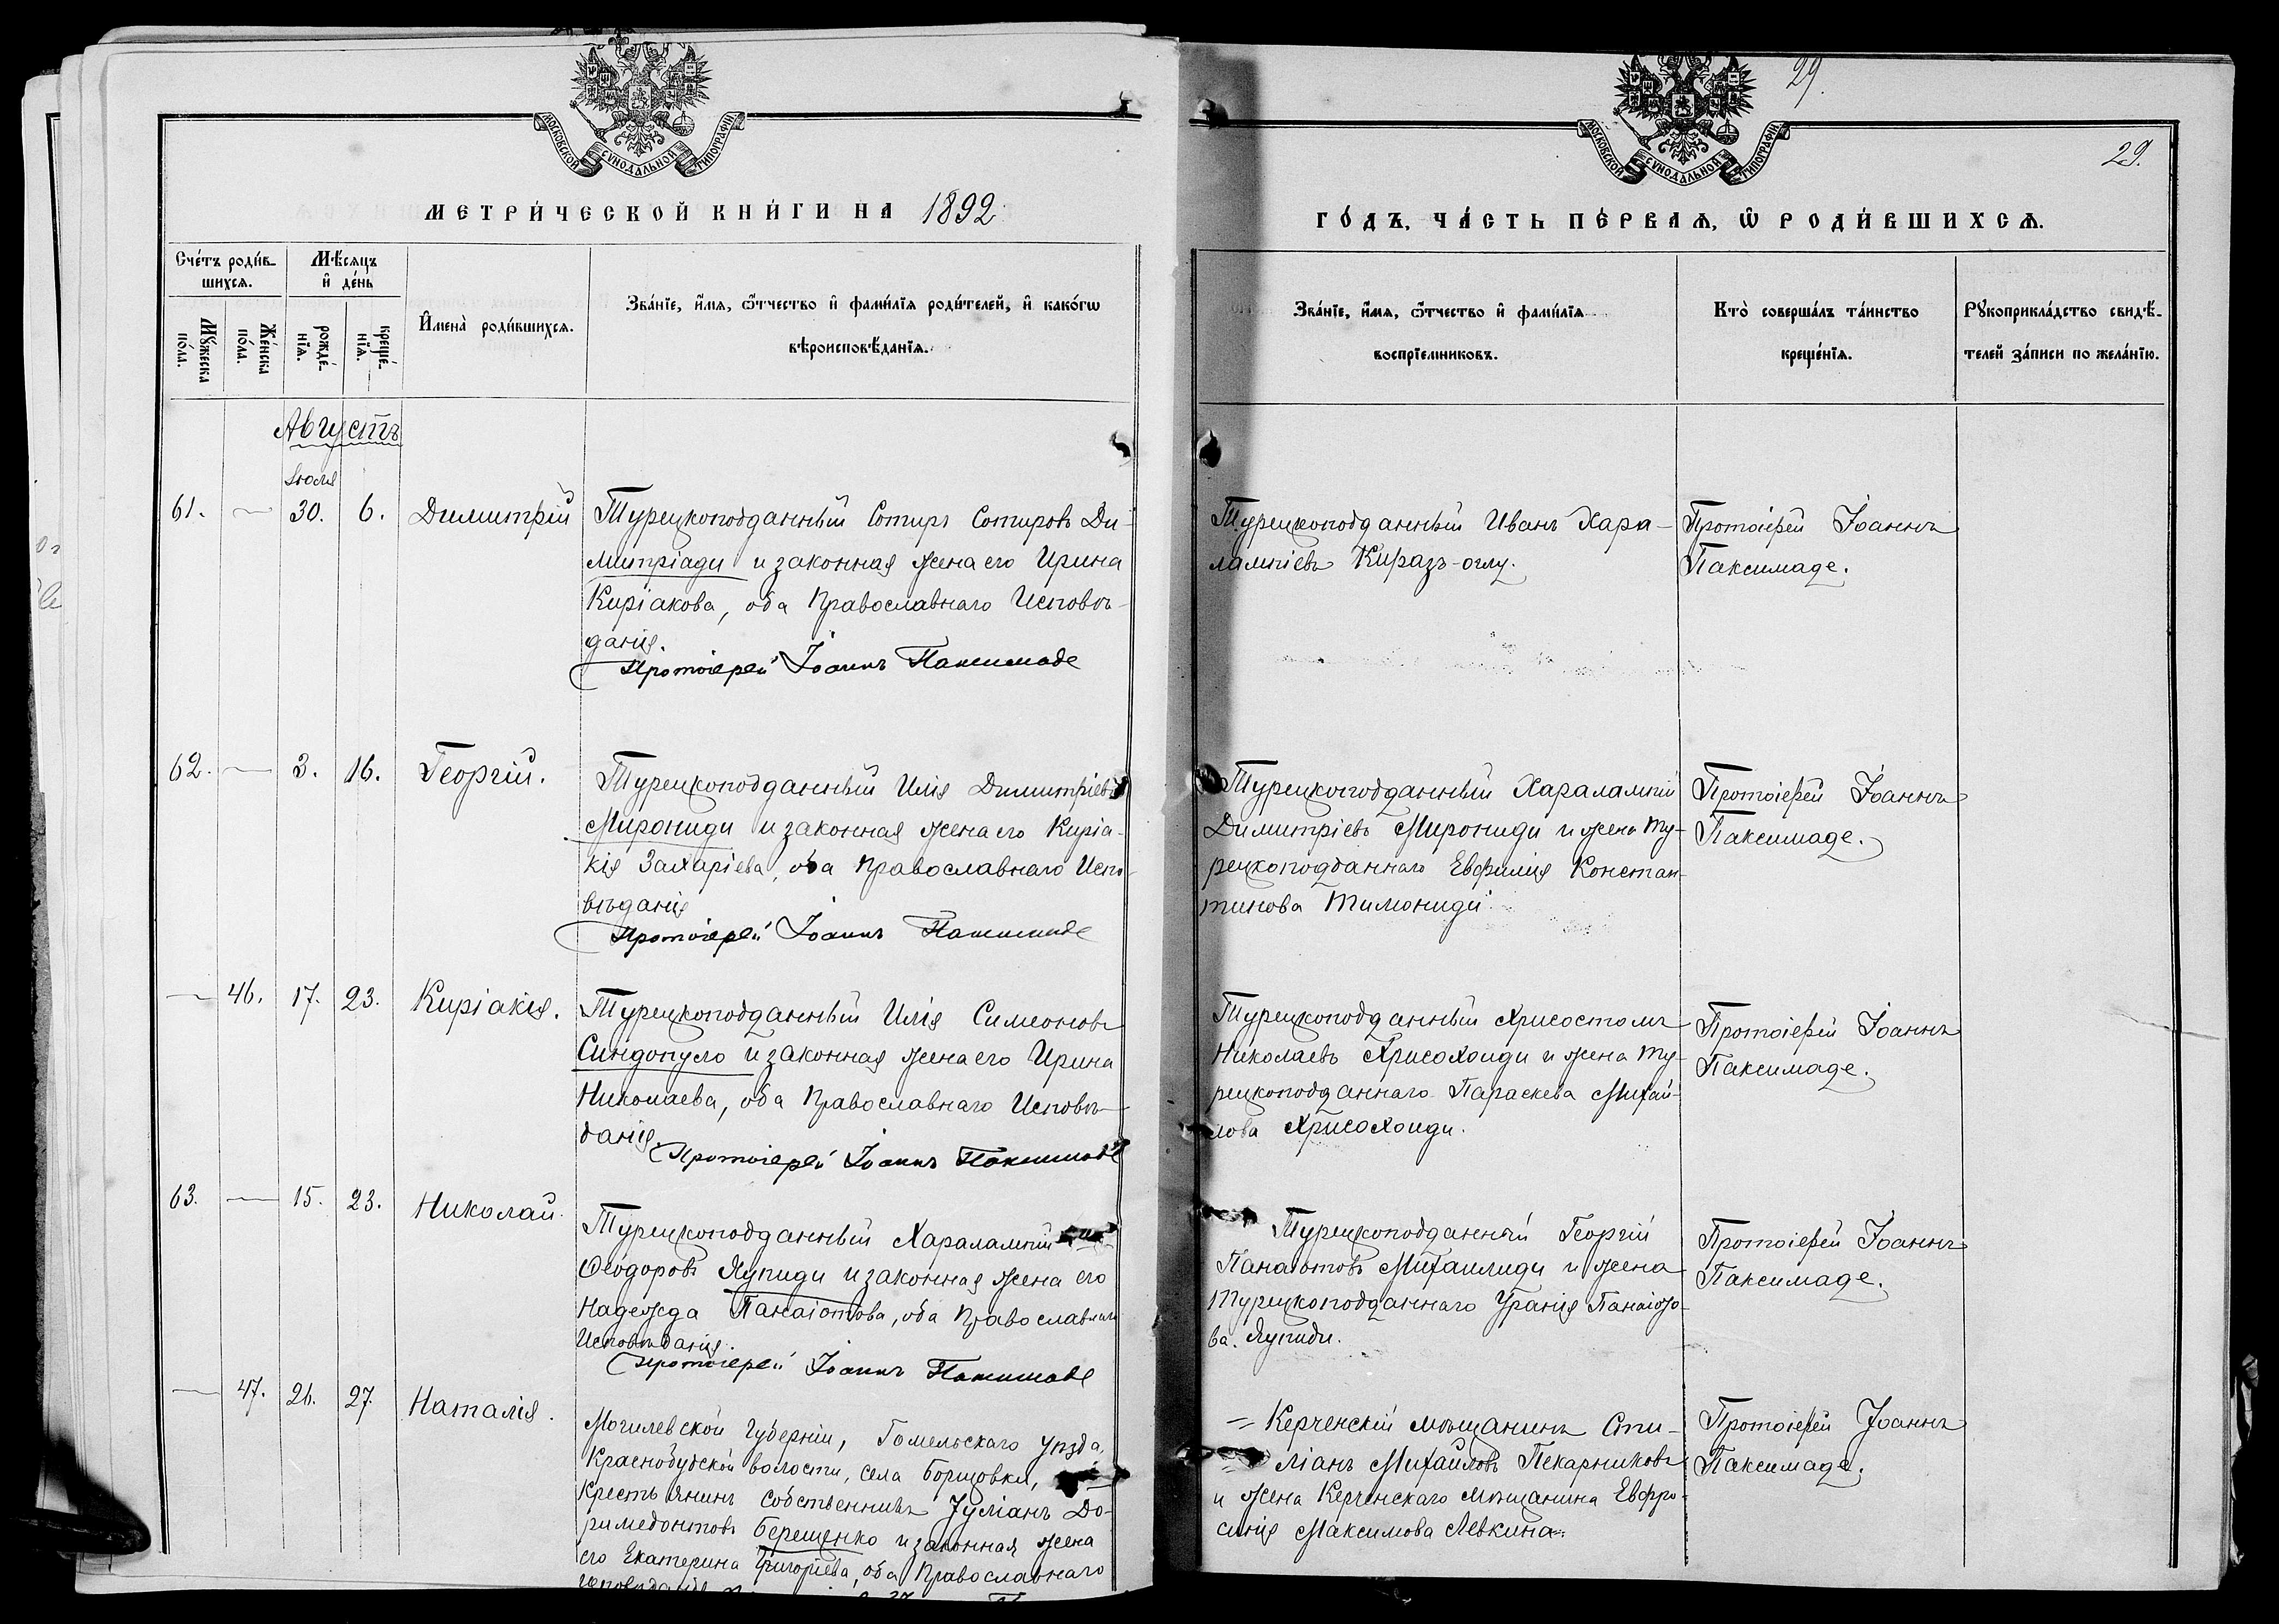 МОСКОВСКОЙ СѴНОДАЛЬНОЙ ТИПОГРАФІИ
МЕТРИ́ЧЕСКОЙ КНИ́ГИ НА 1892
Сче́тъ роди́в-
шихсѧ.
Мѣ́сѧцъ
и҆ де́нь
Мꙋ́жеска
по́ла.
Же́нска
по́ла.
рожде́-
нїѧ.
креще́-
нїѧ.
И҆мена̀ роди́вшихсѧ.
Зва́нїе, и҆́мѧ, ѻ҆́тчество и҆ фами́лїѧ роди́телей, и҆ како́гѡ
вѣроисповѣ́данїѧ.
Августъ
Іюля
61. — 30. 6. Димитрій
Турецкоподданный Сотиръ Сотировъ Ди-
митріади и законная жена его Ирина
Киріакова, оба Православнаго Исповѣ-
данія.
Протоіерей Іоаннъ Паксимаде
62. — 3. 16. Георгій.
Турецкоподданный Илія Димитріевъ
Мирониди и законная жена его Киріа-
кія Захаріева, оба Православнаго Испо-
вѣданія
Протоіерей Іоаннъ Паксимаде
— 46. 17. 23. Киріакія.
Турецкоподданный Илія Симеоновъ
Синдопуло и законная жена его Ирина
Николаева, оба Православнаго Исповѣ-
данія.
Протоіерей Іоаннъ Паксимаде
63. — 15. 23. Николай.
Турецкоподданный Харалампій
Ѳеодоровъ Яупиди и законная жена его
Надежда Панаіотова, оба Православнаго
Исповѣданія.
Протоіерей Іоаннъ Паксимаде
— 47. 26. 27. Наталія.
Могилевской Губерніи, Гомельскаго уѣзда,
Краснобудской волости, села Борщовки,
Крестьянинъ собственникъ Іуліанъ До-
римедонтовъ Берещенко и законная жена
его Екатерина Григоріева, оба Православнаго
29.
МОСКОВСКОЙ СѴНОДАЛЬНОЙ ТИПОГРАФІИ
29.
ГО́ДЪ, ЧА́СТЬ ПЕ́РВАѦ, Ѡ҆ РОДИ́ВШИХСѦ.
Зва́нїе, и҆́мѧ, ѻ҆́тчество и҆ фами́лїѧ
воспрїе́мниковъ.
Кто̀ соверша́лъ та́инство
креще́нїѧ.
Рꙋкоприкла́дство свидѣ́-
телей за́писи по жела́нїю.
Турецкоподданный Иванъ Хара-
лампіевъ Киразъ-оглу.
Протоіерей Іоаннъ
Паксимаде.
Турецкоподданный Харалампій
Димитріевъ Мирониди и жена Ту-
рецкоподданнаго Евфимія Констан-
тинова Тимониди
Протоіерей Іоаннъ
Паксимаде.
Турецкоподданный Хрисостомъ
Николаевъ Хрисохоиди и жена Ту-
рецкоподданнаго Параскева Михай-
лова Хрисохоиди.
Протоіерей Іоаннъ
Паксимаде.
Турецкоподданный Георгій
Панаіотовъ Михаилиди и жена
Турецкоподданнаго Уранія Панаіото-
ва Яупиди.
Протоіерей Іоаннъ
Паксимаде.
Керченскій мѣщанинъ Сти-
ліанъ Михайловъ Пекарниковъ
и жена Керченскаго мѣщанина Евфро-
синія Максимова Левкина.
Протоіерей Іоаннъ
Паксимаде.